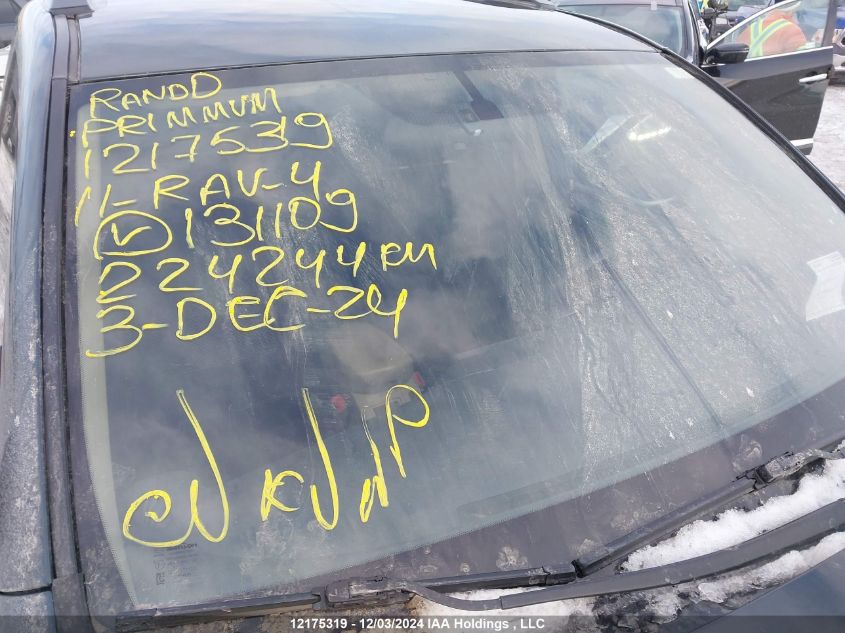 RANDD
PRIMMUM
12175319
11-RAV-4
V 131109
224244 KM
3-DEC-24
12175319 - 12/03/2024 IAA Holdings , LLC